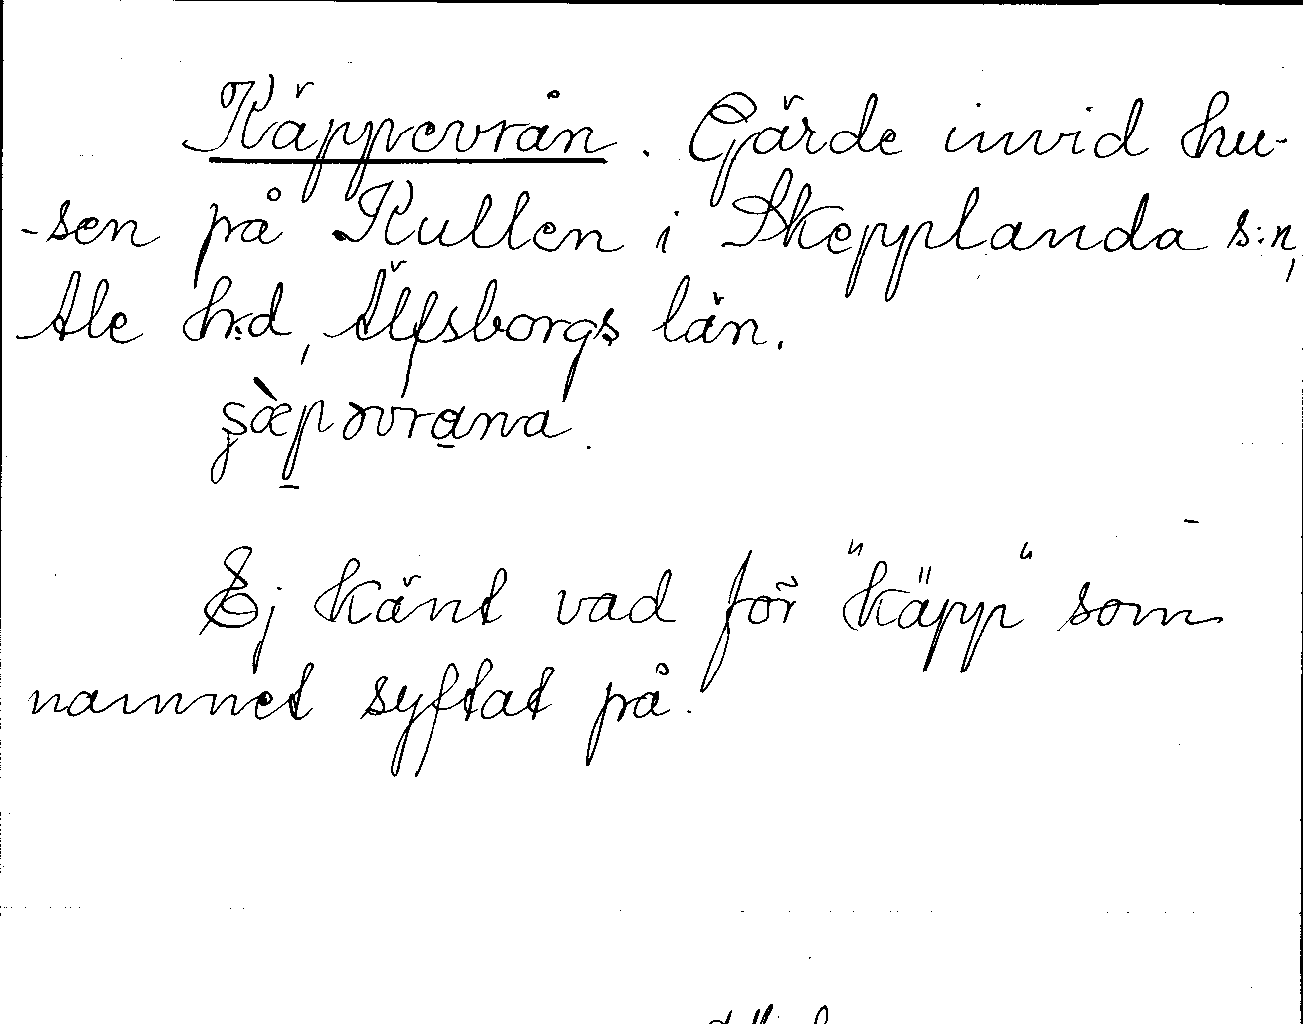 Käppevrån. Gärde invid hu-
-sen på Kullen i Skepplanda s:n,
Ale h:d, Älfsborgs län.
Ej känt vad för "käpp" som
namnet syftat på.